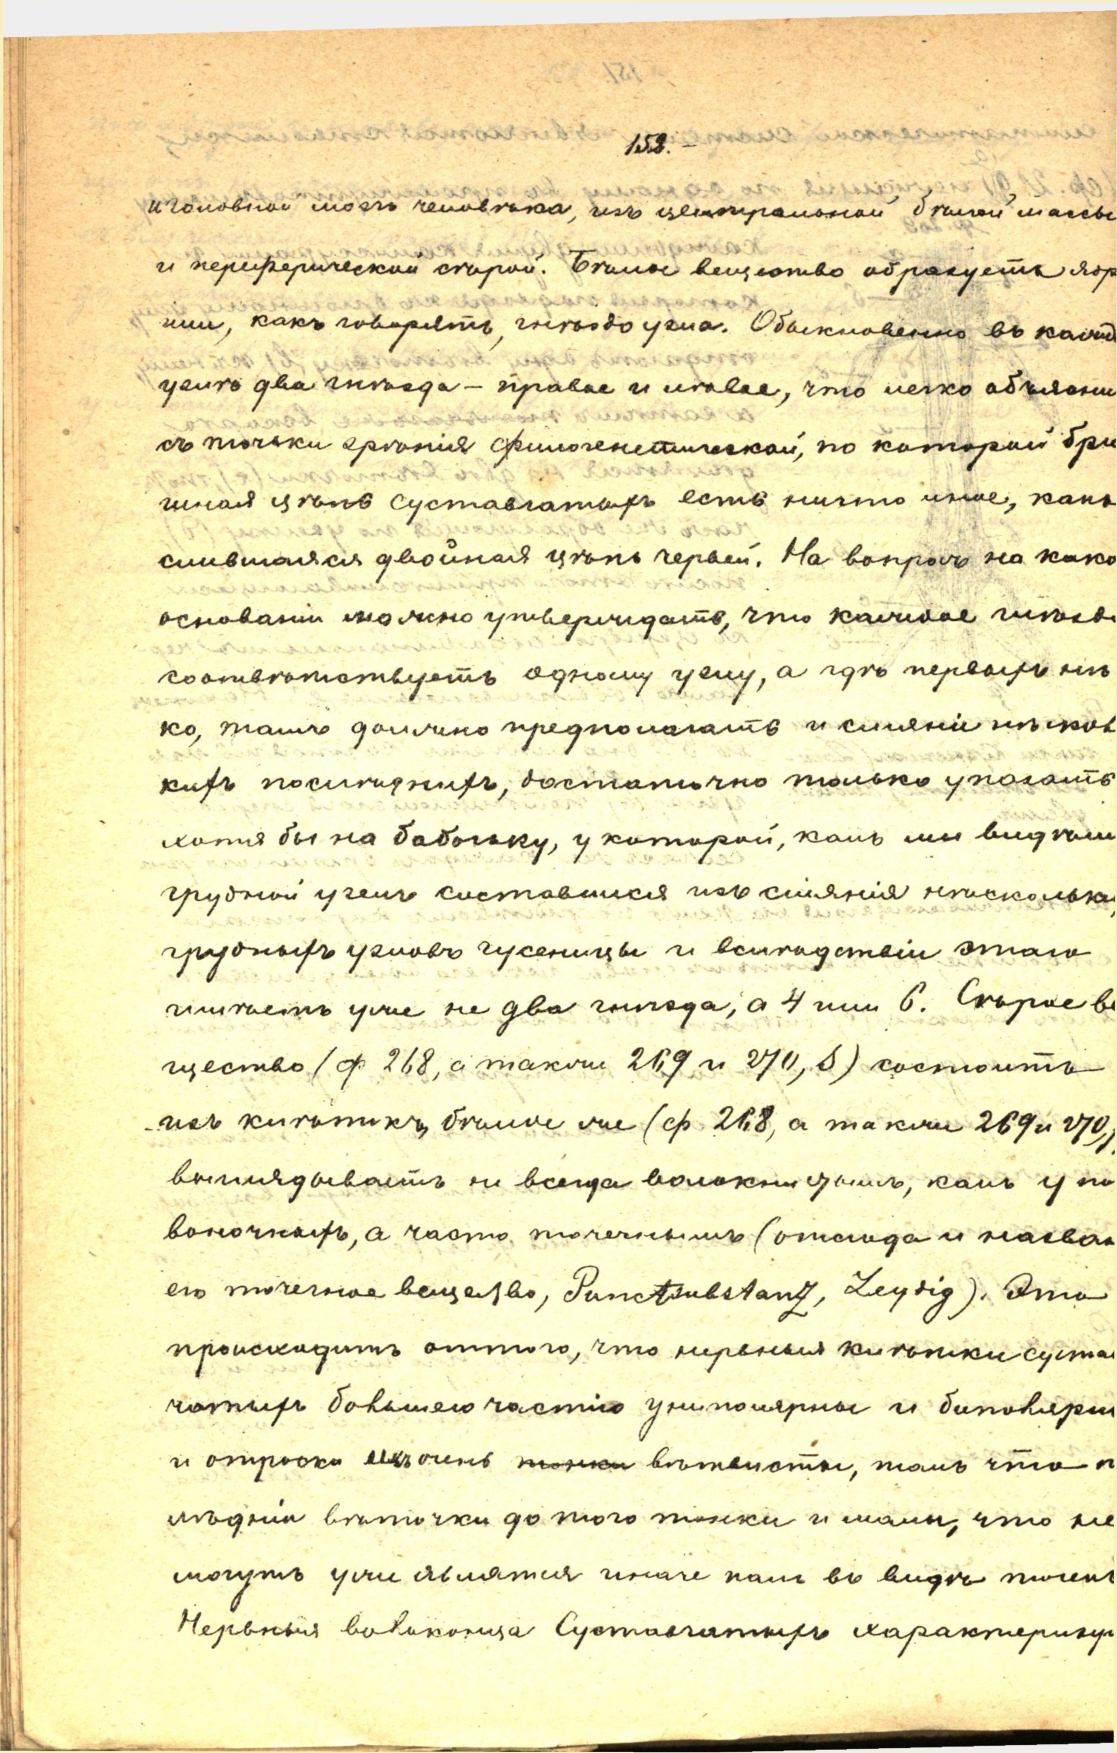 158.-
и головной мозгъ человѣка, изъ центральной бѣлой массы
и периферической сѣрой. Бѣлое вещество образуетъ ядр
или, какъ говорятъ, гнѣздо узла. Обыкновенно въ кажд
узлѣ два гнѣзда - правое и лѣвое, что легко объясни
съ точки зрѣнія филогенетической, по которой брю
шная цѣпь суставчатыхъ есть ничто иное, какъ
слившаяся двойная цѣпь червей. На вопросъ на како
основаніи можно утверждать, что каждое гнѣздо
соотвѣтствуетъ одному узлу, а гдѣ первыхъ нѣ
ко, тамъ должно предполагать и сліяніе нѣскол
кихъ послѣднихъ, достаточно только указать
хотя бы на бабочку, у которой, какъ мы видѣли
грудной узелъ составился изъ сліянія нѣсколькихъ
грудныхъ узловъ гусеницы и вслѣдствіи этого
имѣетъ уже не два гнѣзда, а 4 или 6. Сѣрое ве
щество (ф 268, а также 269 и 270, б) состоитъ
изъ клѣтокъ, бѣлое же (ф 268, а также 269 и 270,
выглядываетъ не всегда волокнистымъ, какъ у по
воночныхъ, а часто точечнымъ (отсюда и назван
его точечное вещество, Punctsubstanz, Leydig). Это
происходитъ оттого, что нервныя клѣтки суста
чатыхъ большею частію униполярны и биполярны
и отростки ихъ очень тонки вѣтвисты, такъ что п
лѣдніе вѣточки до того тонки и малы, что не
могутъ уже являтся иначе какъ въ видѣ точекъ
Нервныя волоконца Суставчатыхъ характеризую